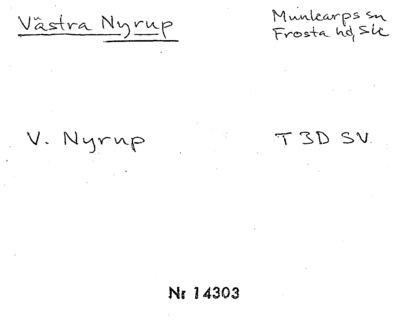 Västra Nyrup
Munkarps sn
Frosta hd, Sk
V. Nyrup
T 3D SV
Nr 14303